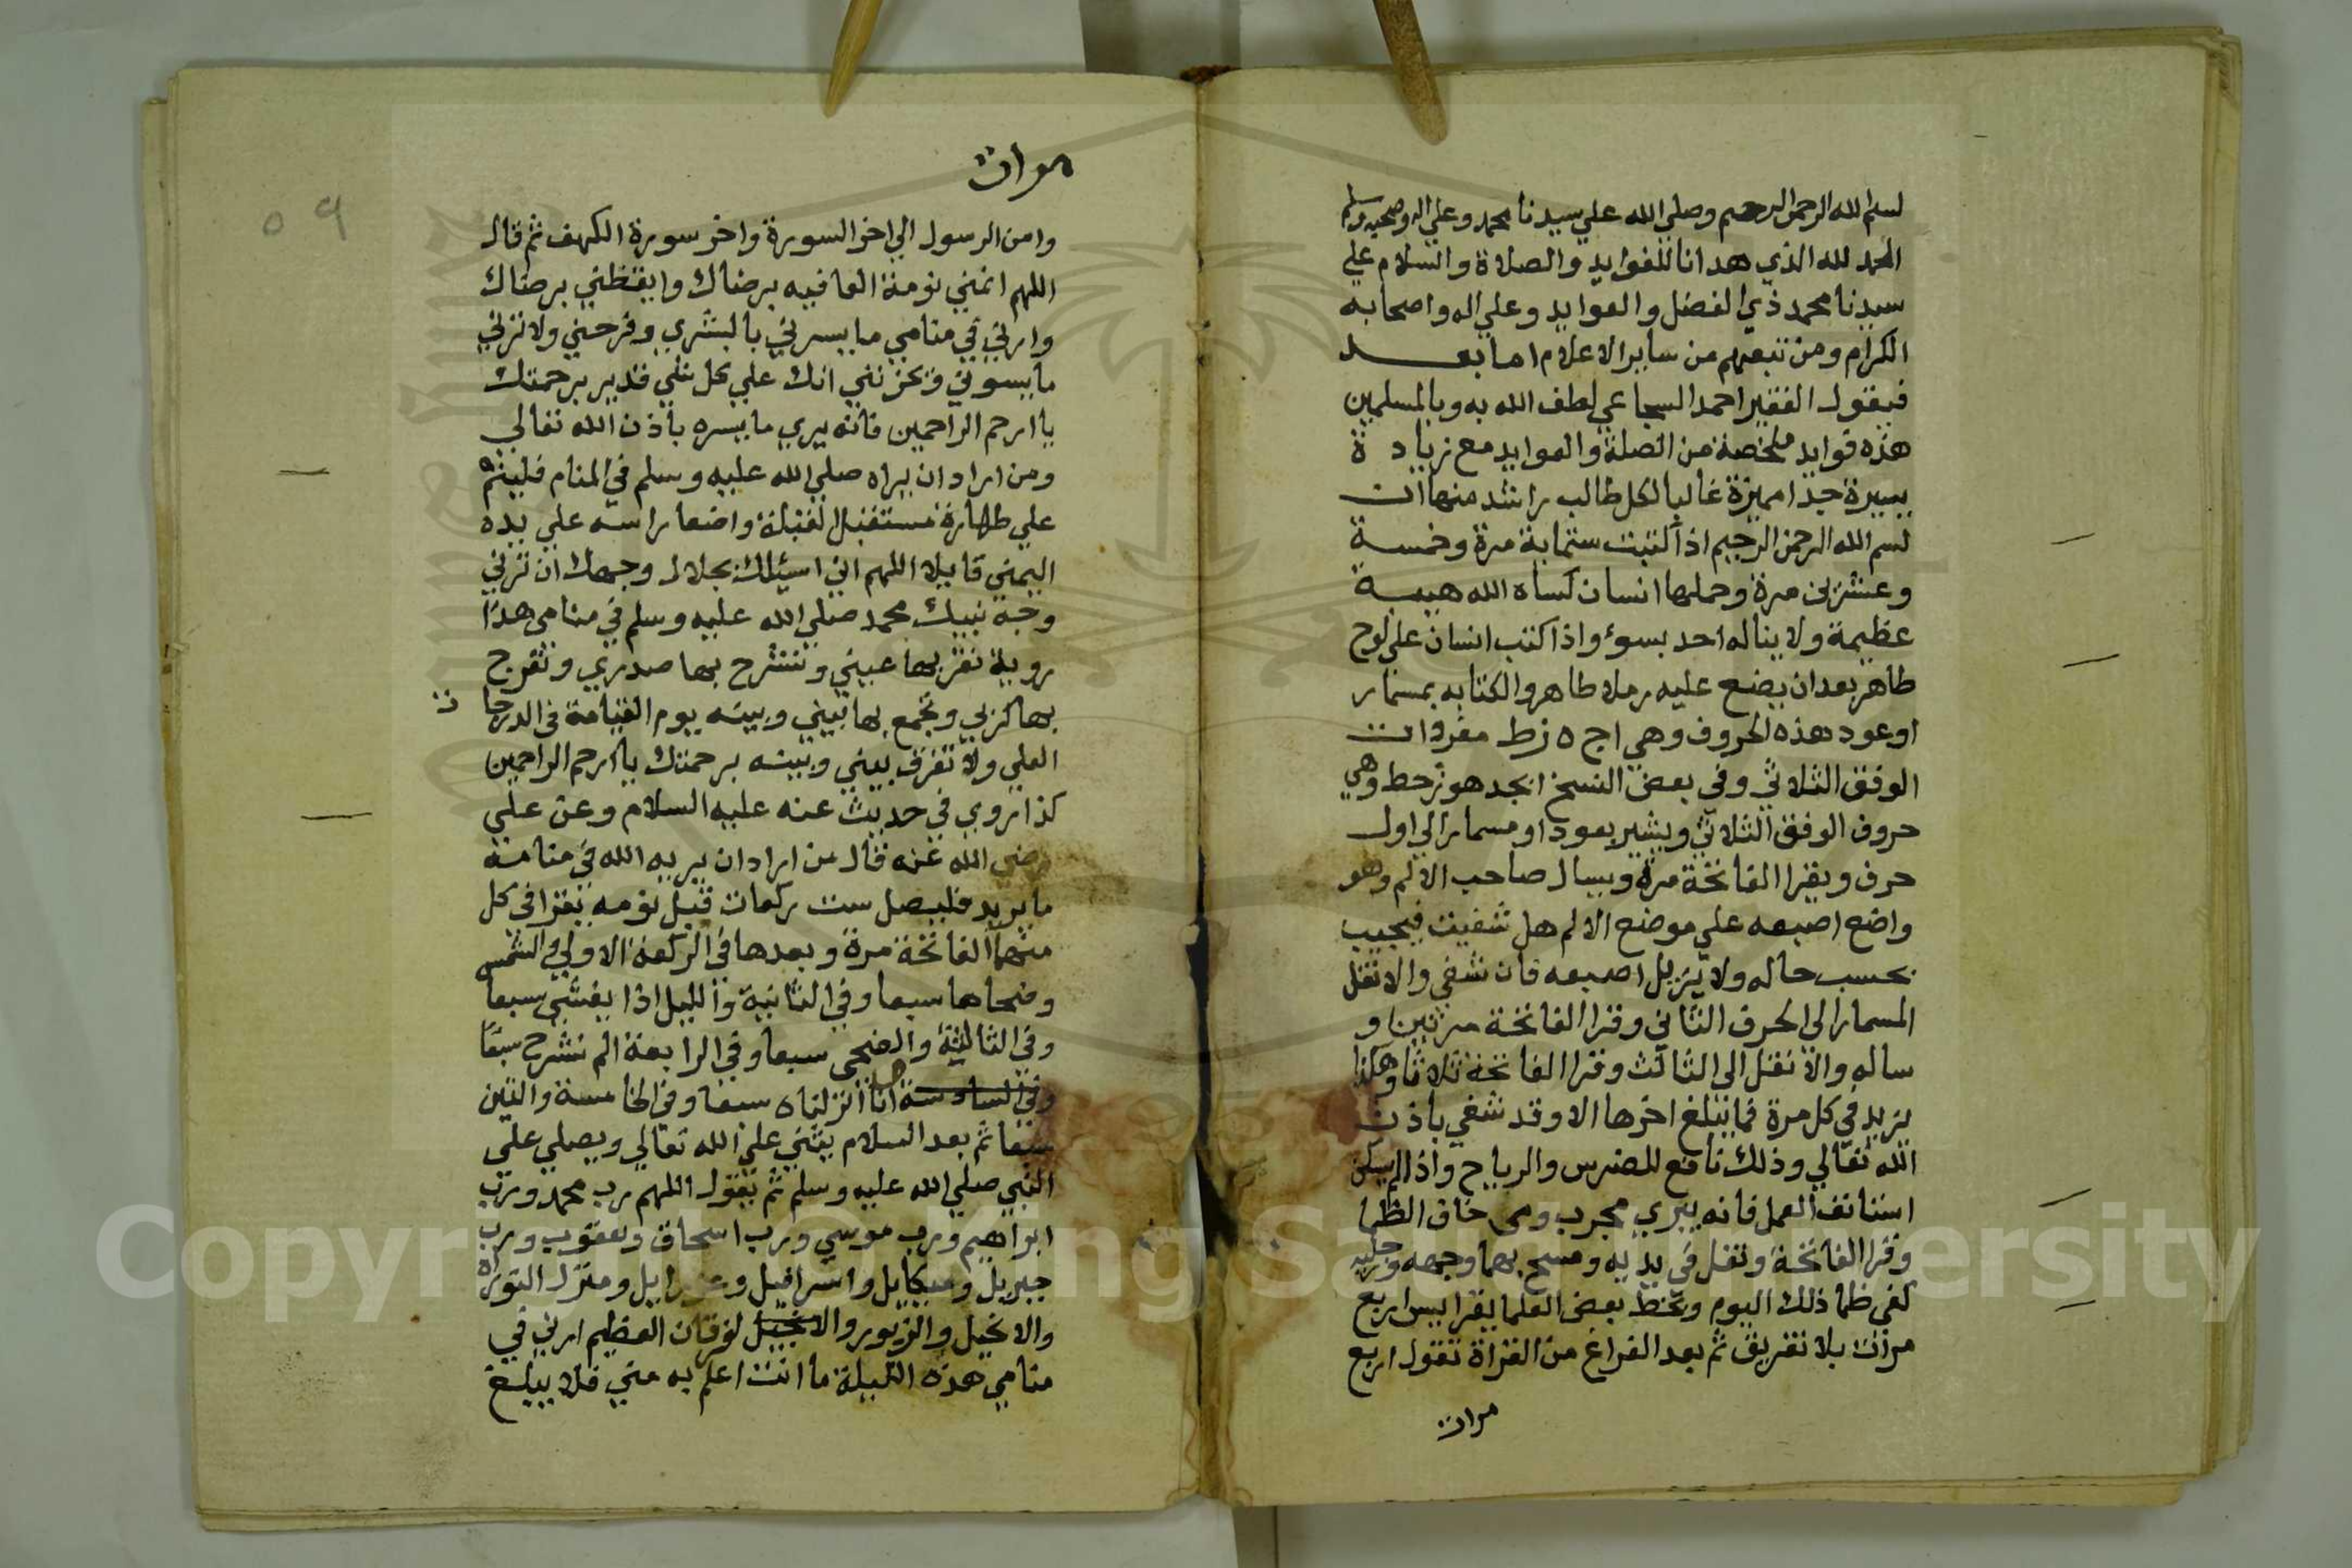 بسم الله الرحمن الرحيم وصلي الله علي سيدنا محمد وعلي اله وصحبه وسلم
الحمد لله الذي هدانا للفوايد والصلاة والسلام علي
سيدنا محمد ذي الفضل والعوايد وعلي اله واصحابه
الكرام ومن تبعهم من ساير الاعلام اما بعد
فيقول الفقير احمد السجاعي لطف الله به وبالمسلمين
هذه فوايد ملخصة من الصلة والعوايد مع زيادة
يسيرة جدا مميزة غالبا لكل طالب راشد منها ان
بسم الله الرحمن الرحيم اذا كتبت ستماية مرة وخمسة
وعشرين مرة وحملها انسان كساه الله هيبة
عظيمة ولا يناله احد بسوء واذا كتب انسان علي لوح
طاهر بعد ان يضع عليه رملا طاهرا والكتابه بمسمار
او عود هذه الحروف وهي اج ه زط مفردات
الوفق الثلاثي وفي بعض النسخ ابجد هوزحط وهي
حروف الوفق الثلاثي ويشير بعود او مسمار الي اول
حرف ويقرا الفاتحة مرة ويسال صاحب الالم وهو
واضع اصبعه علي موضع الالم هل شفيت فيجيب
بحسب حاله ولا يزيل اصبعه فان شفي والا نقل
المسمار الى الحرف الثاني وقرا الفاتحة مرتين و
ساله والا نقل الى الثالث وقرا الفاتحة ثلاثا وهكذا
يزيد في كل مرة فما يبلغ اخرها الا وقد شفي باذن
الله تعالي وذلك نافع للضرس والرياح واذا لم يسكن
استانف العمل فانه يبري مجرب ومن خاف الظما
وقرا الفاتحة وتفل في يديه ومسح بهما وجهه ورجليه
كفى ظما ذلك اليوم وبخط بعض العلما يقرا يس اربع
مرات بلا تفريق ثم بعد الفراغ من القراة تقول اربع
مرات
مرات
وامن الرسول الي اخر السورة واخر سورة الكهف ثم قال
اللهم انمني نومة العافيه برضاك وايقظني برضاك
وارني في منامي ما يسرني بالبشري وفرحني ولا تزني
ما يسوني وتحزنني انك علي كل شي قدير برحمتك
يا ارحم الراحمين فانه يري ما يسره باذن الله تعالي
ومن اراد ان يراه صلي الله عليه وسلم في المنام فلينم
علي طهارة مستقبل القبلة واضعا راسه علي يده
اليمني قايلا اللهم اني اسيلك بجلال وجهك ان تريني
وجه نبيك محمد صلي الله عليه وسلم في منامي هذا
روية تقر بها عيني وتنشرح بها صدري وتفرج
بها كربي وتجمع بها بيني وبينه يوم القيامة في الدرجات
العلي ولا تفرق بيني وبينه برحمتك يا ارحم الراحمين
كذا روي في حديث عنه عليه السلام وعن علي
رضي الله عنه قال من اراد ان يريه الله في منامه
ما يريد فليصل ست ركعات قبل نومه يقرا في كل
منهما الفاتحة مرة وبعدها في الركعة الاولي والشمس
وضحاها سبعا وفي الثانية والليل اذا يغشي سبعا
وفي الثالثة والضحى سبعا وفي الرابعة الم نشرح سبعا
وفي السادسة انا انزلناه سبعا وفي الخامسة والتين
سبعا ثم بعد السلام يثني علي الله تعالي ويصلي علي
النبي صلي الله عليه وسلم ثم يقول اللهم رب محمد ورب
ابراهيم ورب موسي ورب اسحاق ويعقوب ورب
جبريل وميكايل واسرافيل وعزرايل ومنزل التوراه
والانجيل والزبور والانجيل لفرقان العظيم ارني في
منامي هذه الليلة ما انت اعلم به مني فلا يبلغ
٥٩
Copyright © King Saud University